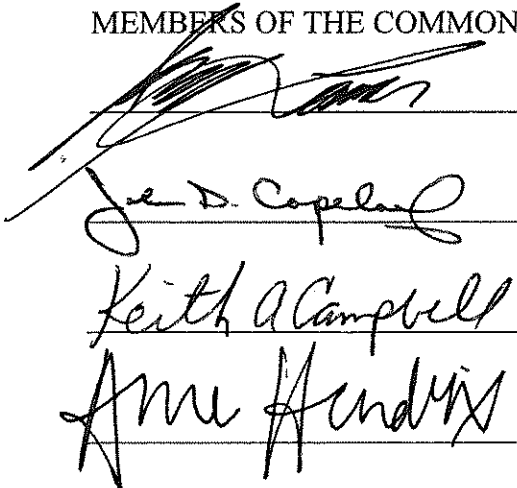 MEMBERS OF THE COMMON
John D. Copeland
Keith A Campbell
Anne Hendrix